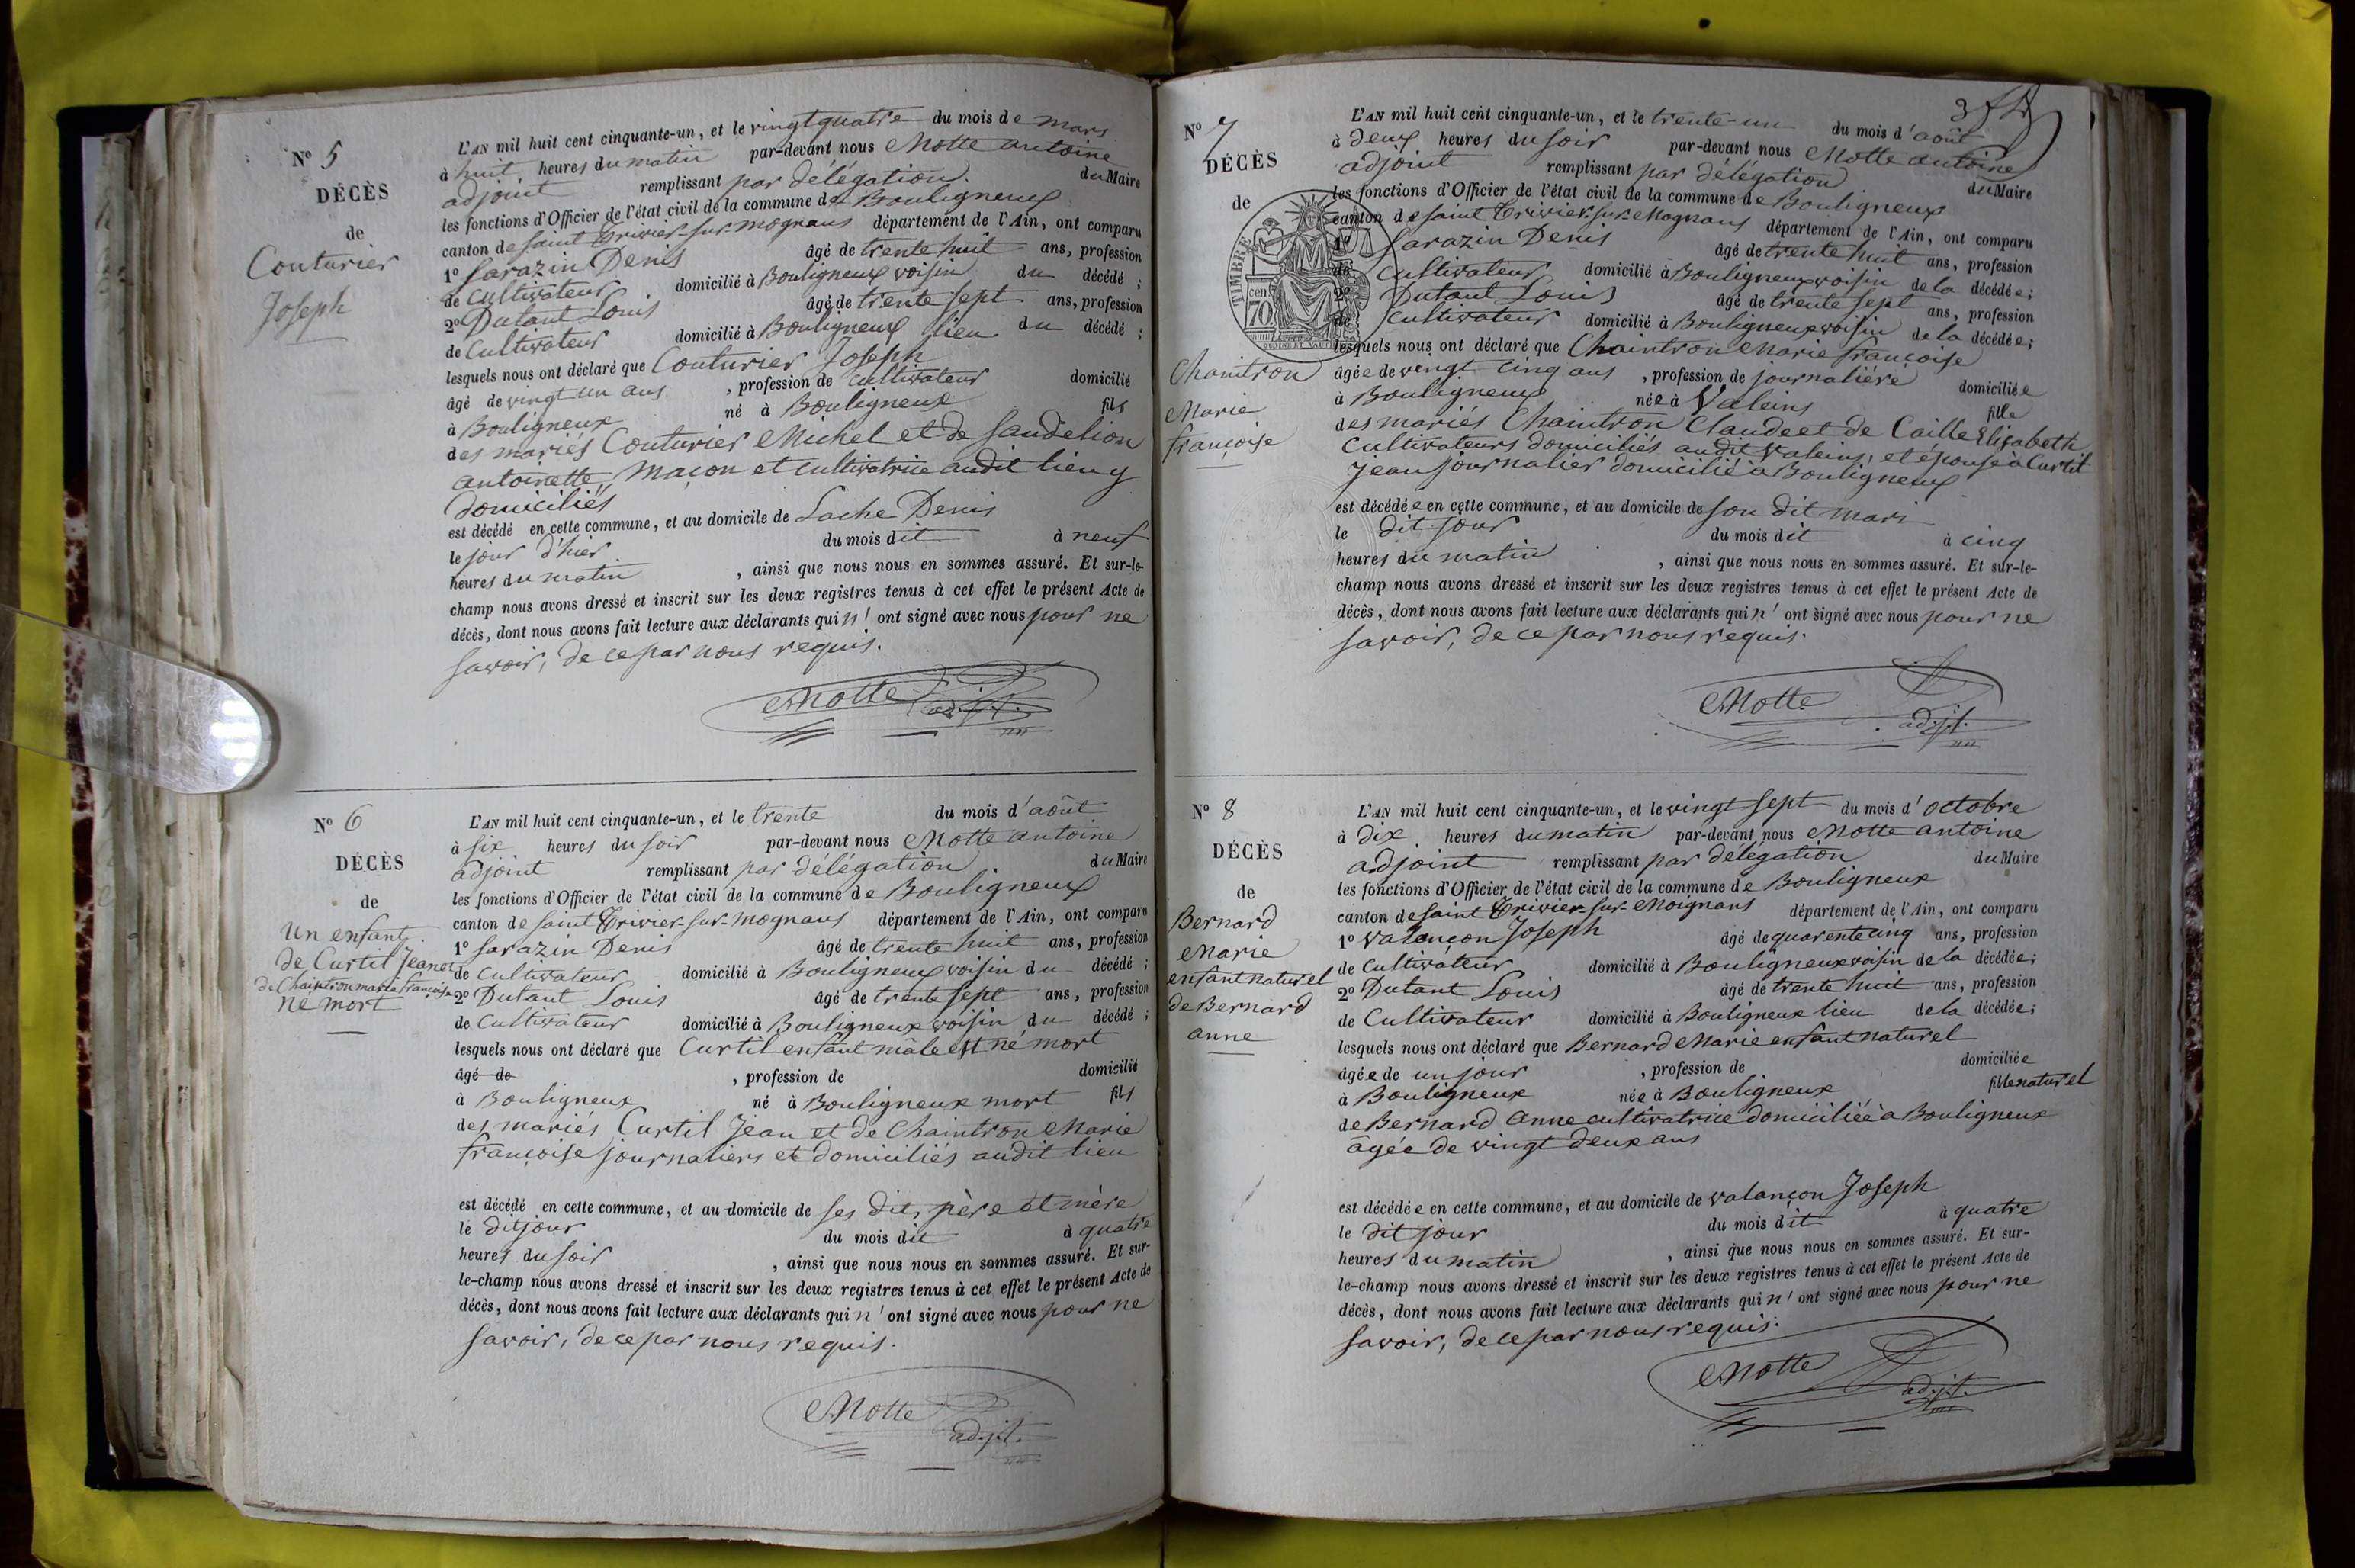 N° 5
DÉCÈS
de
Couturier
Joseph
L'AN mil huit cent cinquante-un, et le vingt quatre du mois de mars
à huit heures du matin par-devant nous Motte antoine
adjoint remplissant par délégation du Maire
les fonctions d'Officier de l'état civil de la commune de Bouligneux
canton de saint Trivier-sur-mognans département de l'Ain, ont comparu
1° Sarazin Denis âgé de trente huit ans, profession
de cultivateur domicilié à Bouligneux voisin du décédé ;
2° Dutant Louis âgé de trente sept ans, profession
de cultivateur domicilié à Bouligneux lieu du décédé ;
lesquels nous ont déclaré que Couturier Joseph
âgé de vingt un ans , profession de cultivateur domicilié
à Bouligneux né à Bouligneux fils
des mariés Couturier Michel et de Sandelion
antoinette, Maçon et cultivatrice audit lieu y
domiciliés
est décédé en cette commune, et au domicile de Lache Denis
le jour d'hier du mois dit à neuf
heures du matin , ainsi que nous nous en sommes assuré. Et sur-le-
champ nous avons dressé et inscrit sur les deux registres tenus à cet effet le présent Acte de
décès, dont nous avons fait lecture aux déclarants qui n' ont signé avec nous pour ne
savoir, de ce par nous requis.
Motte adjt.
N° 6
DÉCÈS
de
un enfant
de Curtil Jean et
de Chaintron marie françoise
né mort
L'AN mil huit cent cinquante-un, et le trente du mois d'août
à six heures du soir par-devant nous Motte antoine
adjoint remplissant par délégation du Maire
les fonctions d'Officier de l'état civil de la commune de Bouligneux
canton de saint Trivier-sur-mognans département de l'Ain, ont comparu
1° Sarazin Denis âgé de trente huit ans, profession
de cultivateur domicilié à Bouligneux voisin du décédé ;
2° Dutant Louis âgé de trente sept ans, profession
de cultivateur domicilié à Bouligneux voisin du décédé ;
lesquels nous ont déclaré que Curtil enfant mâle est né mort
âgé de , profession de domicilié
à Bouligneux né à Bouligneux mort fils
des mariés Curtil Jean et de Chaintron Marie
françoise journaliers et domiciliés audit lieu
est décédé en cette commune, et au domicile de ses dits père et mère
le dit jour du mois dit à quatre
heures du soir , ainsi que nous nous en sommes assuré. Et sur-
le-champ nous avons dressé et inscrit sur les deux registres tenus à cet effet le présent Acte de
décès, dont nous avons fait lecture aux déclarants qui n' ont signé avec nous pour ne
savoir, de ce par nous requis.
Motte adjt.
N° 7
DÉCÈS
de
TIMBRE
cen.
70
Chaintron
Marie
françoise
L'AN mil huit cent cinquante-un, et le trente-un du mois d'août
à deux heures du soir par-devant nous Motte antoine
adjoint remplissant par délégation du Maire
les fonctions d'Officier de l'état civil de la commune de Bouligneux
canton de saint Trivier-sur-Mognans département de l'Ain, ont comparu
1° Sarazin Denis âgé de trente huit ans, profession
de cultivateur domicilié à Bouligneux voisin de la décédée ;
2° Dutant Louis âgé de trente sept ans, profession
de cultivateur domicilié à Bouligneux voisin de la décédée ;
lesquels nous ont déclaré que Chaintron Marie françoise
âgée de vingt cinq ans , profession de journalière domiciliée
à Bouligneux née à Valeins fille
des mariés Chaintron Claude et de Caille Elisabeth
cultivateurs domiciliés audit valeins, et épouse à Curtil
Jean journalier domicilié à Bouligneux
est décédée en cette commune, et au domicile de son dit mari
le dit jour du mois dit à cinq
heures du matin , ainsi que nous nous en sommes assuré. Et sur-le-
champ nous avons dressé et inscrit sur les deux registres tenus à cet effet le présent Acte de
décès, dont nous avons fait lecture aux déclarants qui n' ont signé avec nous pour ne
savoir, de ce par nous requis.
Motte adjt.
N° 8
DÉCÈS
de
Bernard
Marie
enfant naturel
de Bernard
anne
L'AN mil huit cent cinquante-un, et le vingt sept du mois d'octobre
à dix heures du matin par-devant nous Motte antoine
adjoint remplissant par délégation du Maire
les fonctions d'Officier de l'état civil de la commune de Bouligneux
canton de saint Trivier-sur-Moignans département de l'Ain, ont comparu
1° Valançon Joseph âgé de quarente cinq ans, profession
de cultivateur domicilié à Bouligneux voisin de la décédée ;
2° Dutant Louis âgé de trente huit ans, profession
de Cultivateur domicilié à Bouligneux lieu de la décédée ;
lesquels nous ont déclaré que Bernard Marie enfant naturel
âgée de un jour , profession de domiciliée
à Bouligneux née à Bouligneux fille naturel
de Bernard Anne cultivatrice domiciliée à Bouligneux
âgée de vingt deux ans
est décédée en cette commune, et au domicile de valançon Joseph
le dit jour du mois dit à quatre
heures du matin , ainsi que nous nous en sommes assuré. Et sur-
le-champ nous avons dressé et inscrit sur les deux registres tenus à cet effet le présent Acte de
décès, dont nous avons fait lecture aux déclarants qui n' ont signé avec nous pour ne
savoir, de ce par nous requis.
Motte adjt.